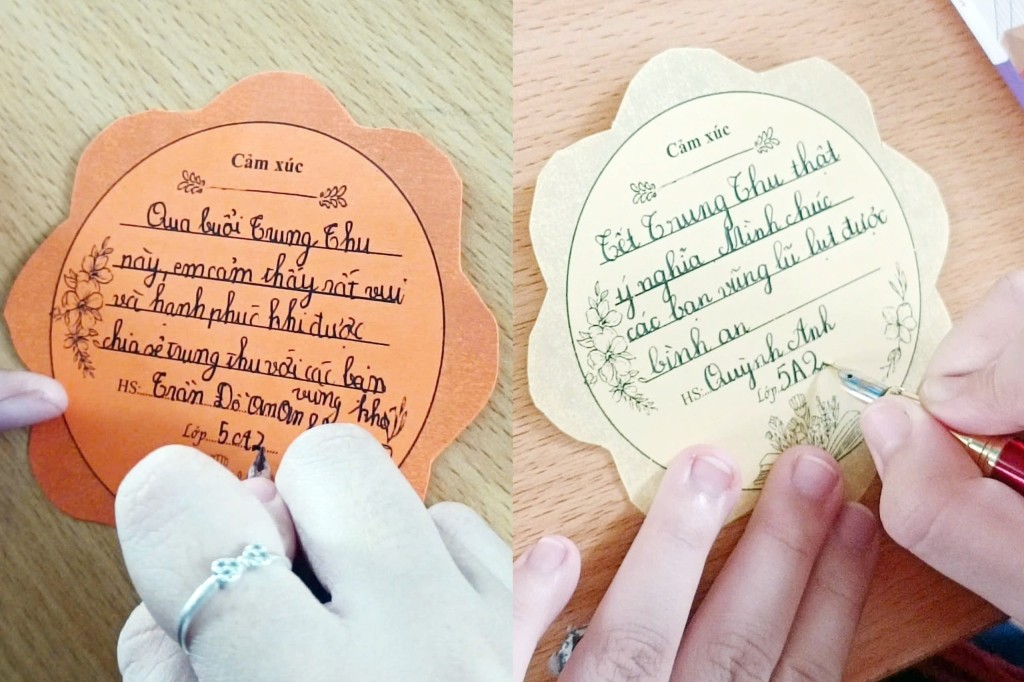 Cảm xúc
Qua buổi Trung Thu
này, em cảm thấy rất vui
và hạnh phúc khi được
chia sẻ trung thu với các bạn
vùng khó
HS: Trần Đỗ
Lớp 5A2
Cảm xúc
Tết Trung Thu thật
ý nghĩa Mình chúc
các bạn vùng lũ lụt được
bình an
HS: Quỳnh Anh
Lớp 5A2